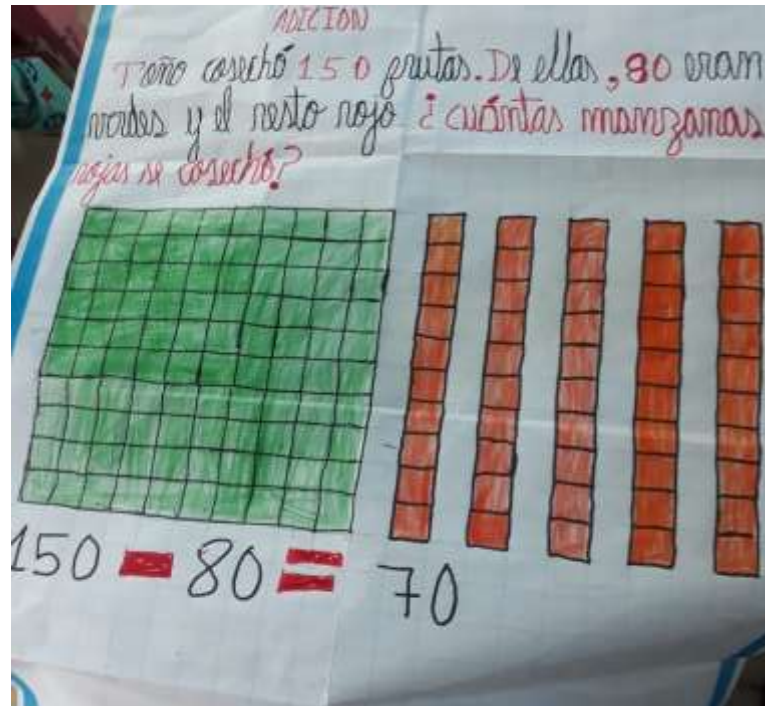 ADICION
Toño cosechó 150 frutas. De ellas, 80 eran
verdes y el resto rojo ¿cuántas manzanas
rojas se cosechó?
150 = 80 = 70